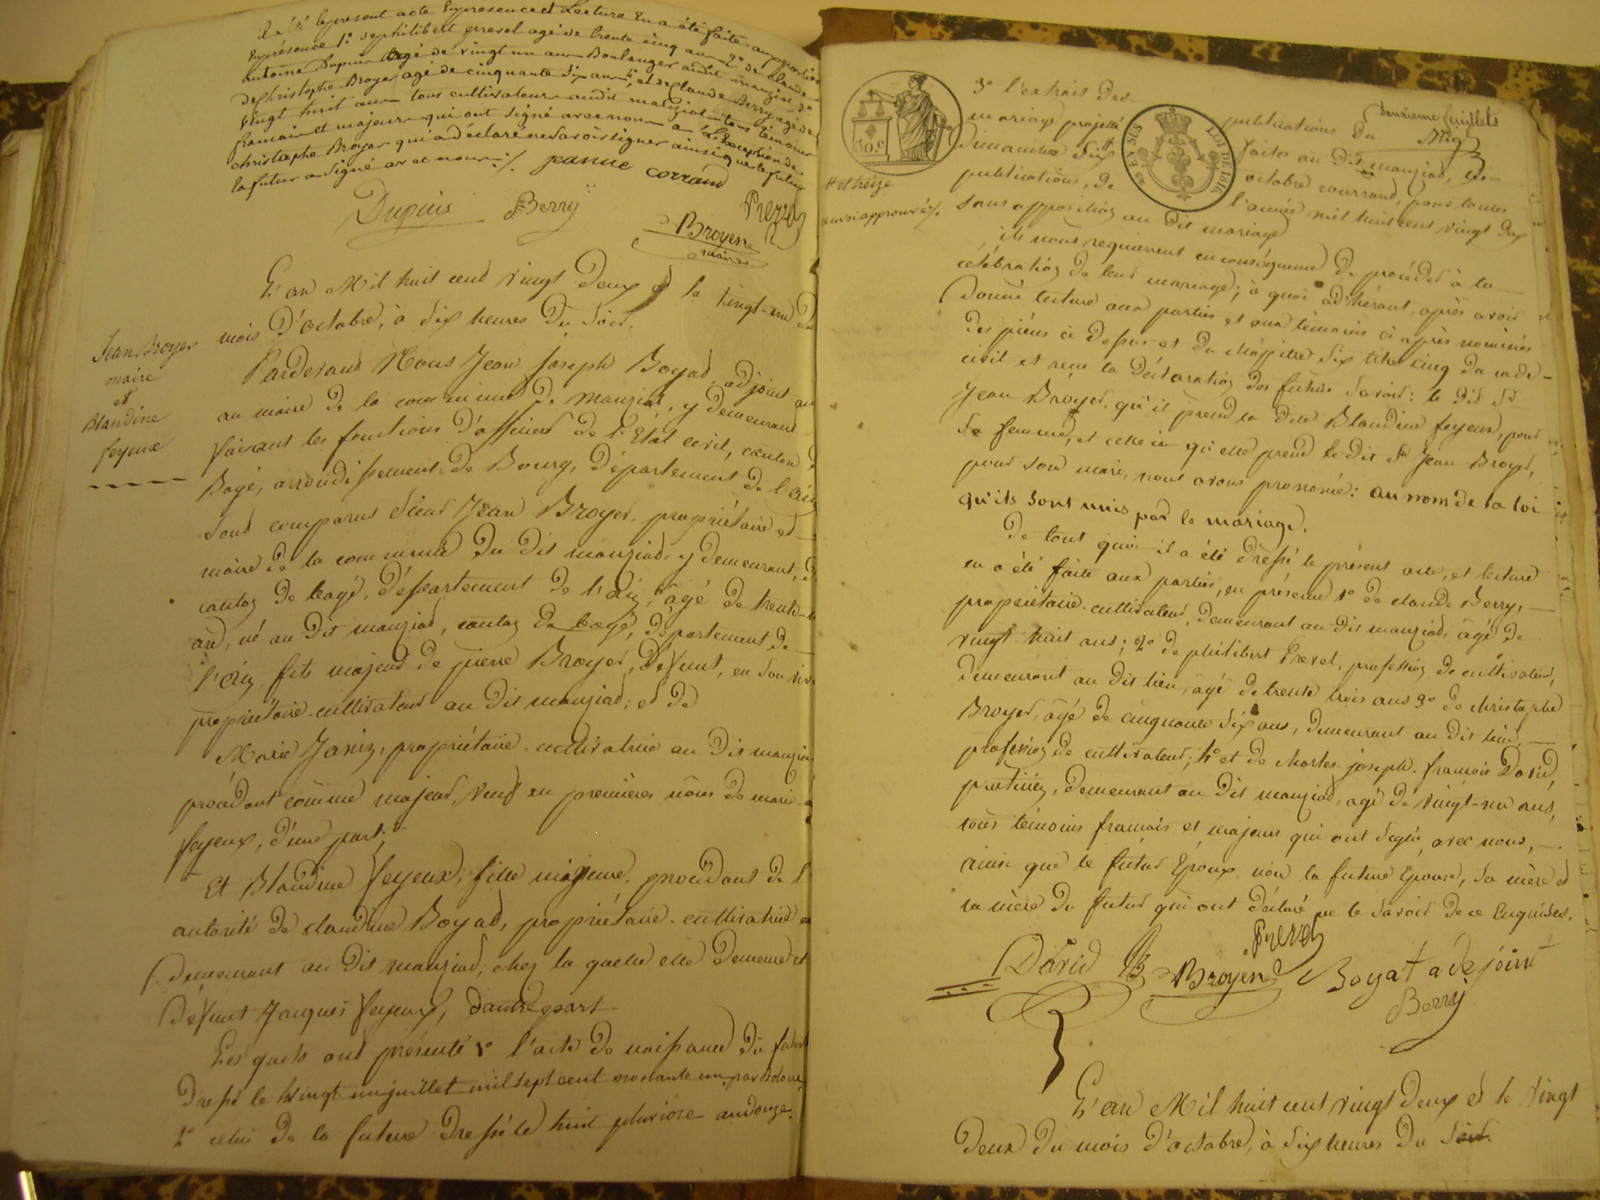 le présent acte en présence et Lecture en a été faite aux parties
En présence 1° de philibert prevel agé de trente cinq ans 2° de Claude
antoine Dupuis agé de vingt un ans Boulanger audit manziat 3°
de Christophe Broyer agé de cinquante six ans, et de claude Berry agé de
vingt huit ans tous cultivateurs audit manziat tous témoins
francais et majeurs qui ont signé avec nous a L'Exception de
christophe Broyer qui a déclaré ne savoir signer ainsi que le futur
la futur a signé avec nous ./. jeanne corrand
Dupuis Berry Prevel
Broyer
maire
L'an Mil huit cend vingt Deux et le vingt-un du
mois D'octobre, à Six heures Du Soir.
Jean Broyer
maire
et
Blandine
feyeux
Pardevand Nous Jean Joseph Boyad, adjoint au
au maire de la commune De Manziat, y demeurant
faisant les fonctions D'officier De l'Etat civil, canton De
Bagé, arrondissement De Bourg, Département De l'ain
Sont comparus Sieur Jean Broyer, propriétaire et
maire De la commune Du Dit manziad y demeurant,
canton De bagé, Département De l'ain, âgé De trente
an, né au Dit manziad, canton De bagé, Département De
l'ain, fils majeur de pierre Broyer, Défunt, en Son vivant
propriétaire-cultivateur au Dit manziad; et De
Marie Janin, propriétaire-cultivatrice au Dit manziad
procédant comme majeur, veuf en premières nôces De marie
feyeux, d'une part;
Et Blandine feyeux, fille majeure, procédant De l'
autorité De claudine Boyad, propriétaire-cultivatrice
Demeurant au Dit manziad, chez la quelle elle Demeure et
Défunt Jacques feyeux, d'autre part
Les quels ont présenté 1° l'acte De naissance Du futur
Dressé le vingt un juillet mil sept cent nonante un par
2° celui De la future Dressé le huit pluviose an douze.
onzieme feuillets
3° l'extrait des publications Du
mariage projetté faites au Dit manziad, les
Dimanches Six octobre courrand, pour toutes
publications, De l'année mil huit cent vingt Deux
Sans opposition au Dit mariage
et treize
renvoi approuvé ./.
50.c
EN SUS
LOI DE 1816
ils nous requierent en conséquence De procéder à la
célébration De leur mariage; à quoi adhérant, après avoir
Donné lecture aux parties et aux témoins ci après nommés
Des pièces ci Dessus et Du chapitre Six titre cinq Du code
civil et reçu la Déclaration Des futurs Savoir: le Dit Sr
Jean Broyer qu'il prend la Dite Blandine feyeux, pour
Sa femme, et celle ci qu'elle prend le Dit Sr Jean Broyer,
pour Son mari, nous avons prononcé: au nom de la loi
qu'ils sont unis par le mariage.
De tout quoi il a été Dressé le présent acte, et lecture
en a été faite aux parties, en présence 1° de claude Berry,
propriétaire-cultivateur, Demeurant au Dit manziad, âgé De
vingt-huit ans; 2° De philibert Prevel, profession De cultivateur,
Demeurant au Dit lieu, âgé De trente trois ans 3° De christophe
Broyer, âgé De cinquante Six ans, Demeurant au Dit lieu,
profession De cultivateur; 4° et De charles-joseph-francois David,
praticien, Demeurant au Dit manziad, agé De vingt-un ans,
tous témoins francais et majeurs qui ont Signé avec nous,
ainsi que le futur Epoux, non la future Epouse, Sa mère et
la mère Du futur qui ont Déclaré ne le Savoir De ce Enquises.
David Broyer Prevel Boyat adejoint
Berry
L'an Mil huit cent vingt Deux et le vingt
Deux Du mois D'octobre, à Six heures Du Soir.